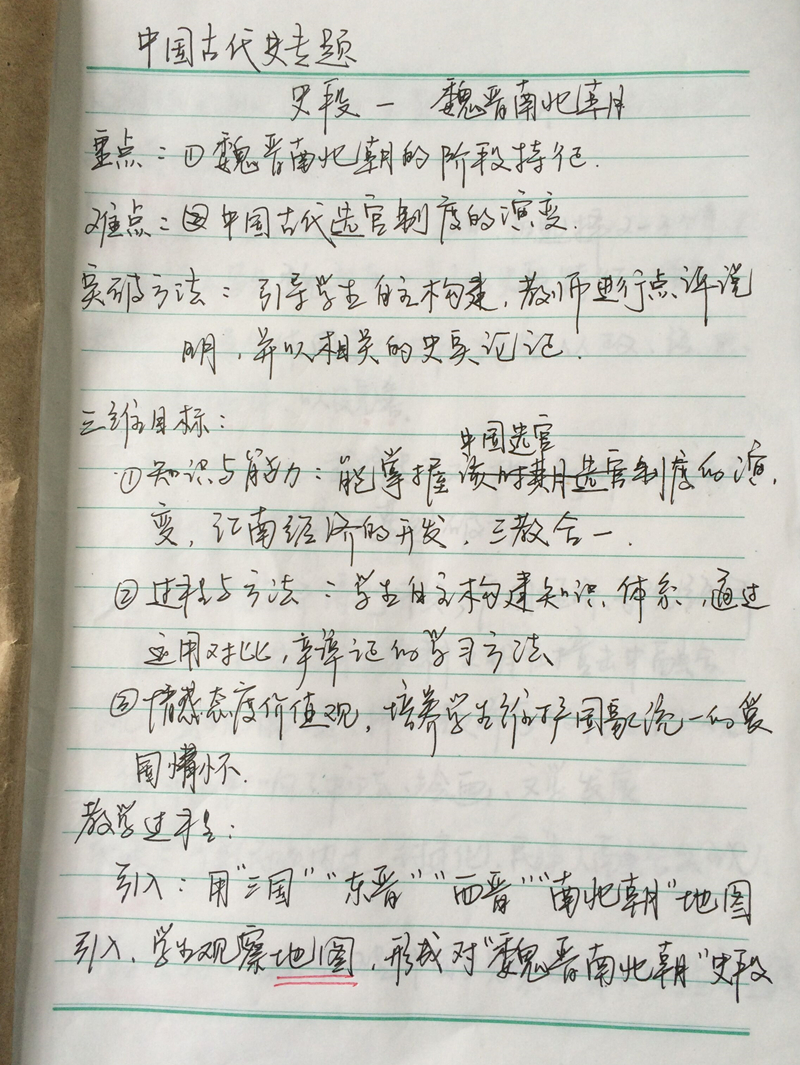 中国古代史专题
史段一 魏晋南北朝
重点：①魏晋南北朝的阶段特征.
难点：②中国古代选官制度的演变.
突破方法：引导学生自主构建,教师进行点评说
明,并以相关的史实论证.
三维目标：
中国选官
①知识与能力：能掌握该时期选官制度的演
变,江南经济的开发,三教合一.
②过程与方法：学生自主构建知识体系,通过
运用对比,辛谆证的学习方法
③情感态度价值观,培养学生维护国家统一的爱
国情怀.
教学过程：
引入：用"三国""东晋""西晋""南北朝"地图
引入,学生观察地图,形成对"魏晋南北朝"史段